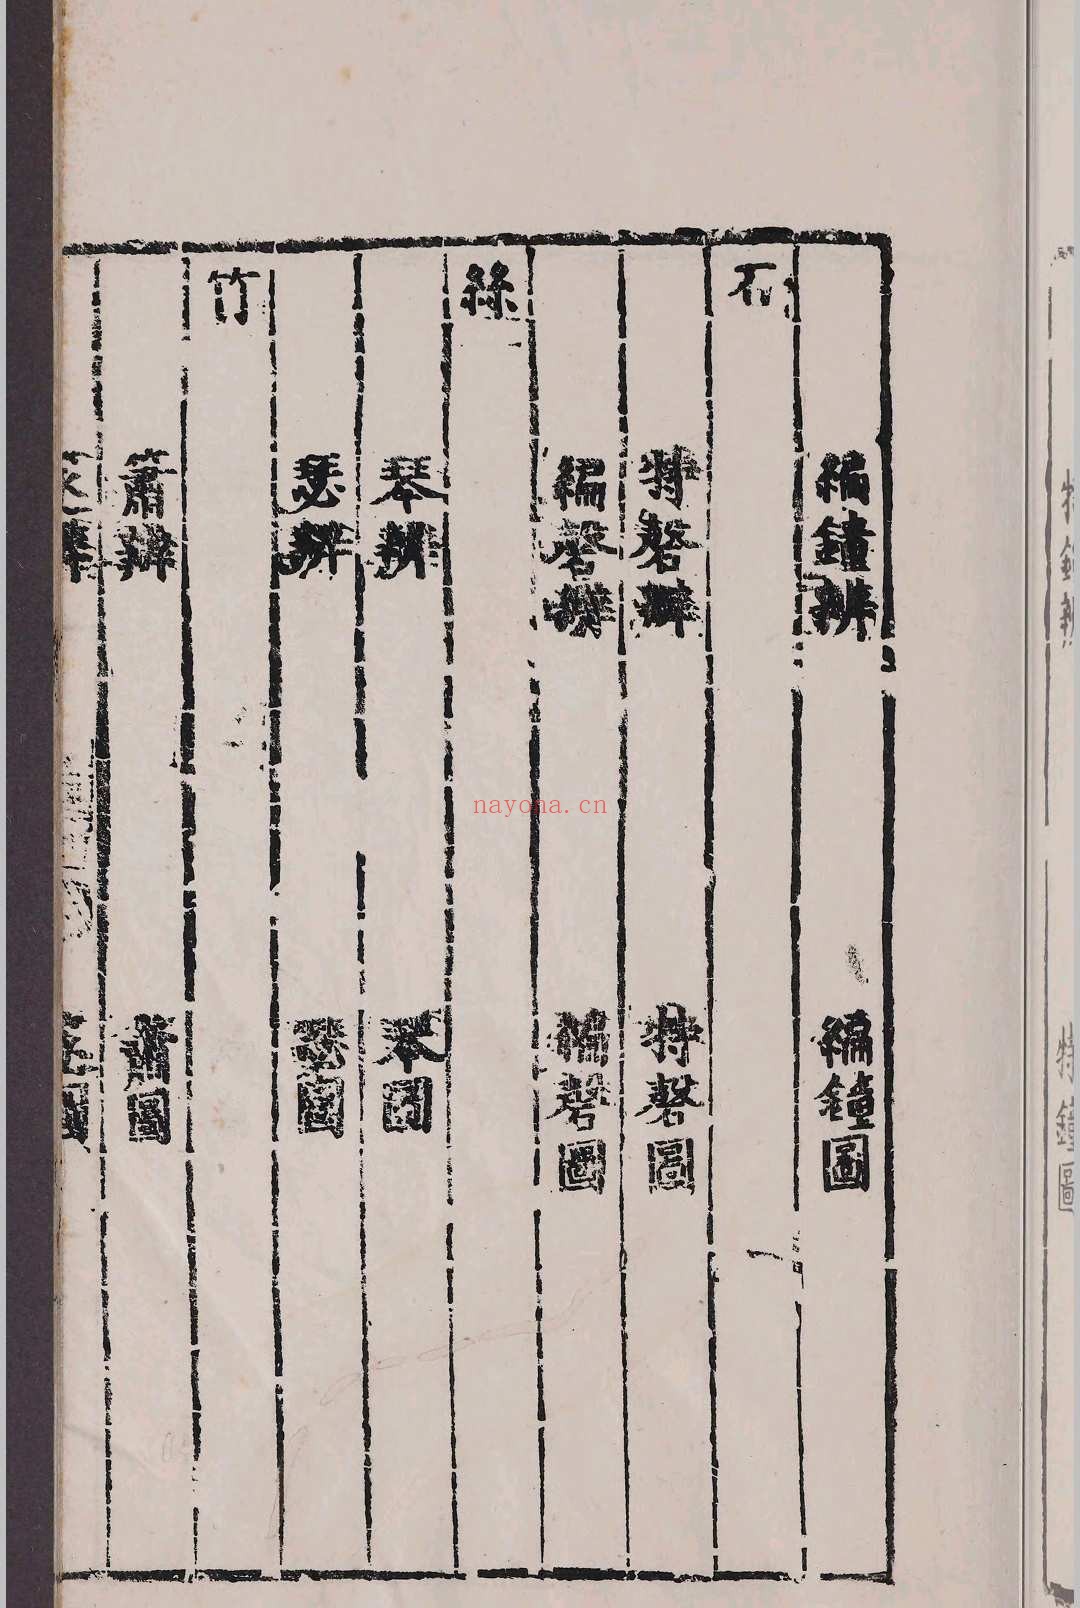 特鐘辨 特鐘圖
編鐘辨 編鐘圖
石
特磬辨 特磬圖
編磬辨 編磬圖
絲
琴辨 琴圖
瑟辨 瑟圖
竹
簫辨 簫圖
辨 圖
nayona.cn